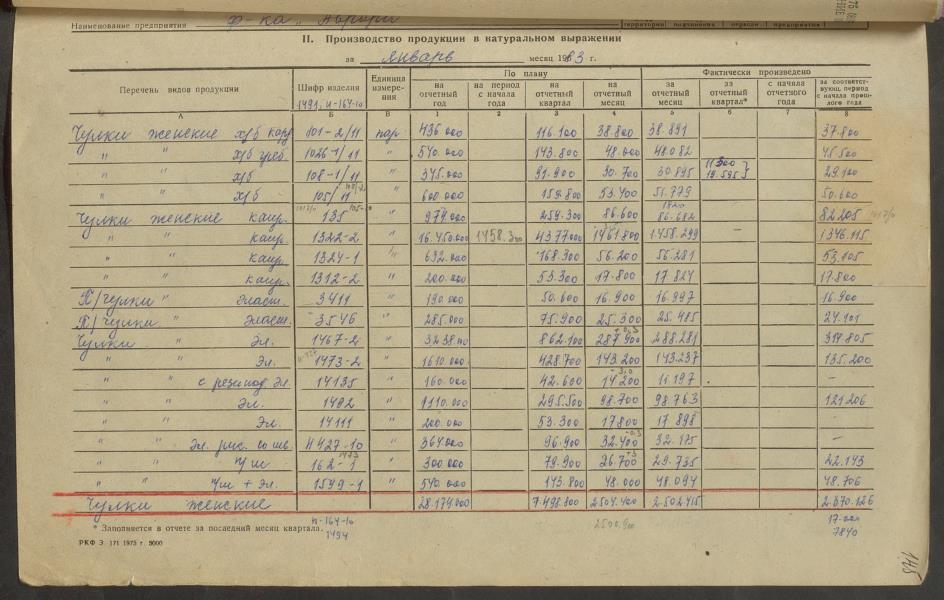 Наименование предприятия ф-ка „Аврора"
II. Производство продукции в натуральном выражении
за январь месяц 1983 г.
Перечень видов продукции Шифр изделия Единица измере- ния По плану Фактически произведено
на отчетный год на период с начала года на отчетный квартал на отчетный месяц за отчетный месяц за отчетный квартал* с начала отчетного года за соответст- вующ. период с начала прош- лого года
А Б В 1 2 3 4 5 6 7 8
Чулки женские х/б кард 101-2/11 пар 436.000 116.100 38.800 38.891 37.800
" х/б греб. 1026-1/11 " 540.000 143.800 48.000 48.082 45.500
" х/б 108-1/11 " 345.000 91.900 30.700 30.895 29.100
" х/б 105/11 " 600.000 159.800 53.400 51.779 50.600
Чулки женские капр. 135 " 974.000 259.300 86.600 86.682 82205
" " капр. 1322-2 " 16.450.000 1458.300 4377000 1461800 1.458.299 1346.115
" капр. 1324-1 " 632.000 168.300 56.200 56.281 53.105
" капр. 1312-2 " 200.000 53.300 17.800 17824 17.800
П/чулки " эласт. 3411 " 190.000 50.600 16.900 16.997 16.900
П/чулки " эласт. 3546 " 285.000 75.900 25.300 25.485 24.101
Чулки " эл. 1467-2 " 862.100 287.900 288.281 317.805
" эл. 1473-2 " 1610.000 428.700 143.200 143.237 135.200
" " эл. 14135 " 160.000 42.600 14200 11.197 –
" " эл. 1492 " 1110.000 295.500 98.700 98.763 121206
" " эл. 14111 " 200.000 53.300 17800 17898 –
" " 4427-10 " 364.000 96.900 32.400 32.175 –
" " ч/ш 162-1 " 300.000 79.900 26.700 29.735 22.143
" " ч/ш + эл. 1599-1 " 540.000 143.800 48.000 48.094 48.706
Чулки женские 28.174000 7.498.100 2504.400 2.502.415 2.670.126
* Заполняется в отчете за последний месяц квартала. н-164-10 1494 2500.900 17.000
7840
РКФ Э. 171 1975 г. 5000
145